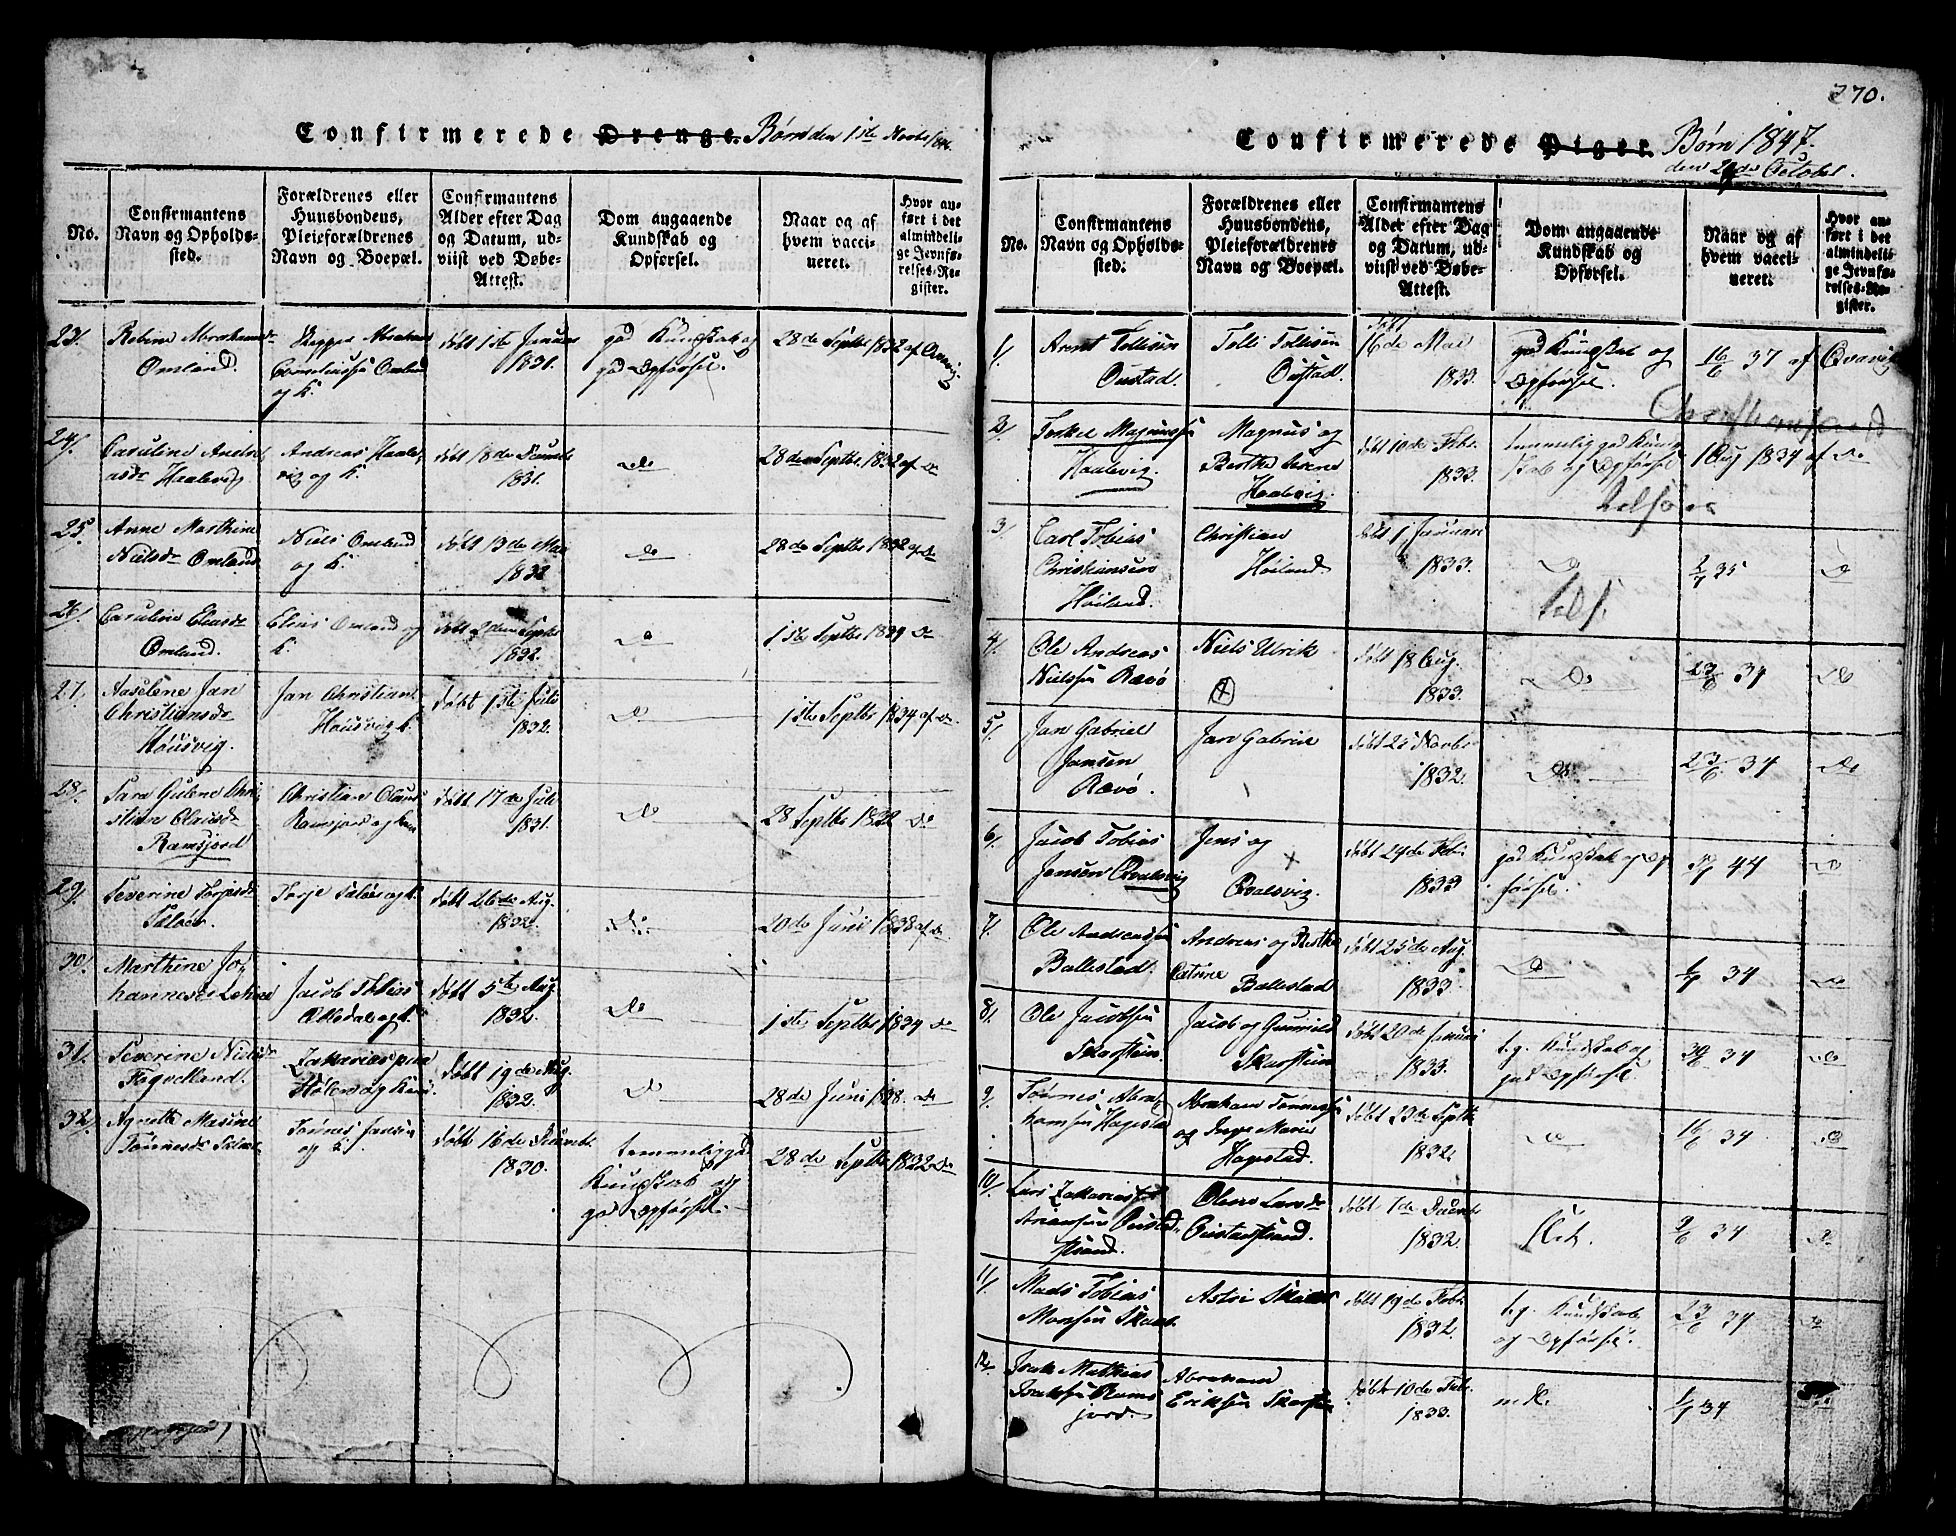 270.
Confirmerede Drenge. Børn den 1ste Novbr 1846.
No.
Confirmantens Navn og Opholds-
sted.
Forældrenes eller
Huusbondens,
Pleieforældrenes
Navn og Boepæl.
Confirmantens
Alder efter Dag
og Datum, ud-
viist ved Døbe-
Attest.
Dom angaaende
Kundskab og
Opførsel.
Naar og af
hvem vacci-
neret.
Hvor an-
ført i det
almindeli-
ge Jevnfø-
relses-Re-
gister.
23/. Robine Abrahamsd
Omland.
Abraham
Corneliussen Omland
og K.
født 1ste Januar
1831.
god Kundskab og
god Opførsel.
28de Septbr 1832 af
24/. Caroline Andre
asdr Haalevig
Andreas Haale
vig og K.
født 18de Decemb
1831.
do
28de Septbr 1832 af do
25/. Anne Marthine
Nielsdr Omland
Niels Omland
og K.
født 13de Mai
1832
do
28de Septbr 1832 af do
26/. Caroline Eliasdr
Omland.
Elias Omland og
K.
født 2den Septbr
1832.
do
1ste Septbr 1834 do
27/. Aaselene Jan
Christiansdr
Høusvig.
Jan Christian
Høusvig K.
født 1ste Juli
1832.
do
1ste Septbr 1834 af do
28/. Sara Gulene Chri
stian Olausdr
Ramsjord
Christian Olaus
Ramsjord og kone
født 17de Juli
1831.
do
28 Septbr 1832 do
29/. Severine Torjesdr
Saløer.
Torje Saløer og K.
født 26de Aug.
1832.
do.
20de Juni 1838 af do
30/. Marthine Jo
hannesdr
Jacob Tobias
og K.
født 5te Aug.
1832.
do
1ste Septbr 1834 do
31/. Severine Nielsdr
Fagvedland.
Zakarias
og Kone.
født 19de Aug.
1832.
do
28de Juni 1838. do
32/. Agnethe Masine
Tønnesdr
Tønnes Jansen
og K.
født 16de Decembr
1830.
temmelig god
Kundskab og
god Opførsel.
28de Septbr 1832 do
Confirmerede Piger. Børn 1847.
den 24de October.
No.
Confirmantens
Navn og Opholds-
sted.
Forældrenes eller
Huusbondens,
Pleieforældrenes
Navn og Boepæl.
Confirmantens
Alder efter Dag
og Datum, ud-
viist ved Døbe-
Attest.
Dom angaaende
Kundskab og
Opførsel.
Naar og af
hvem vacci-
neret.
Hvor an-
ført i det
almindeli-
ge Jevnfø-
relses-Re-
gister.
1/. Arent Tollisen
Oustad.
Tolli Tollisen
Oustad.
født
16de Mai
1833.
god Kundskab og
Opførsel.
16/6 37 af
2/. Torkel Magnussen
Haalevig.
Magnus og
Berthe Serene
Haalevig.
født 10de Febr.
1833.
temmelig god Kund
skab og Opførsel
1 Aug 1834 af do
3/. Carl Tobias
Christiansen
Høiland.
Christian
Høiland.
født 1 Januar
1833.
do
2/7 35
do
4/. Ole Andreas
Nielsen Rævø
Niels Ulrik
født 18 Aug.
1833.
do
23/6 34
do
5/. Jan Gabriel
Jansen
Rævø
Jan Gabriel
født 25 Novbr
1832.
do
23/6 34
do
6/. Jacob Tobias
Jensen Qvalsvig
Jens og
Qvalsvig.
født 24de Febr.
1833
god Kundskab og Op
førsel.
44
do
7/. Ole Andreassen
Ballestad.
Andreas og Berthe
Catrine
Ballestad
født 25de Aug.
1833.
do
34
do
8/. Ole Jacobsen
Skarstein.
Jacob og Gunvold
Skarstein
født 20de Januar
1833.
t. g. Kundskab og
god Opførsel.
34
do
9/. Tønnes Abra
hamsen Hagestad
Abraham Tønnessen
og Inge Marie
Hagestad.
født 23de Septbr
1832.
do
16/6 34
do
10/. Lars Zakarias
Oustad
strand.
Olene Larsdr
Oustadstrand.
født 1de Decembr
1832.
slet.
9/6 34
do
11/. Mads Tobias
Monsen
født 19de Febr.
1832.
t. g. Kundskab
og Opførsel.
23/6 34
do
12/. Isak Mathias
Isaksen Rams
jord.
Abraham
Eriksen
født 10de Febr.
1833.
1/7 34